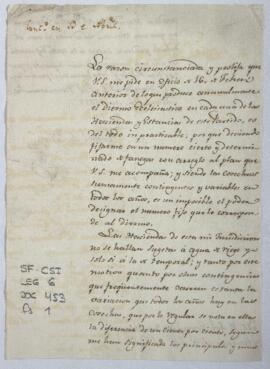 La razon circunstanciada y prolija que
V.S. me pide en oficio de 16 de Febrero
anterior de lo que produce annualmente
el diezmo eclesiastico en cada una de las
Haciendas y Estancias de este Partido, es
del todo impracticable, por que deviendo
fixarme en un numero cierto y determi-
nado con arreglo al plan que
V.S. me acompaña; y siendo las cosechas
sumamente contingentes y variables en
todos los años, es un imposible el poder
designar el numero fijo que le correspon-
de al diezmo.
Las Haciendas de esta mi Jurisdiccion
no se hallan sugetas á agua de riego y
solo si á la de temporal; y tanto por este
motivo quanto por otras contingencias
que frequentemente ocurren es tanta la
variacion que todos los años hay en las
Cosechas, que por lo regular se nota en ellas
la diferencia de un ciento por ciento, segun
me han significado los principales
SF-CSI
LEG 6
DOC 453
fo 1